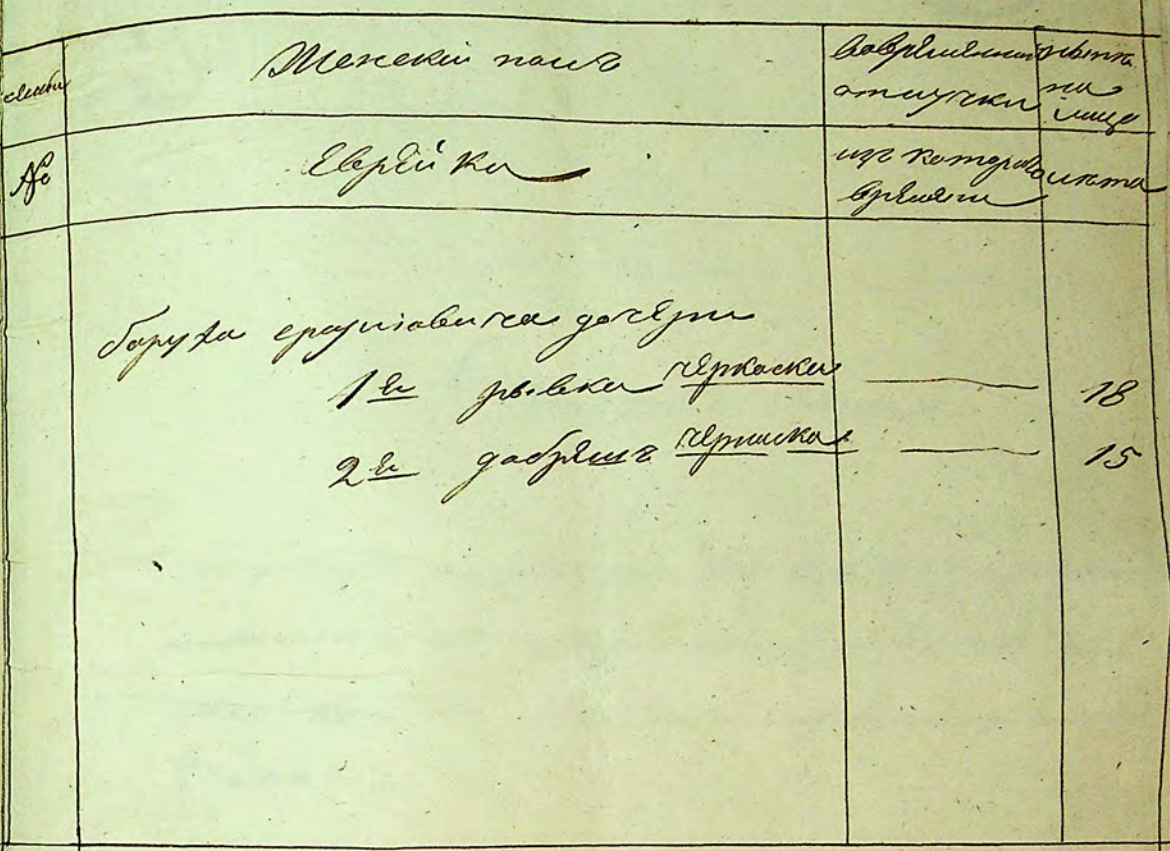 семьи
Женскій полъ
вовременной отлучки
нынѣ на лицо
№
Еврейка
изъ котораго времяни
лѣта
боруха сруліовича дочери
1я рывка черкаская 18
2я добрышъ 15